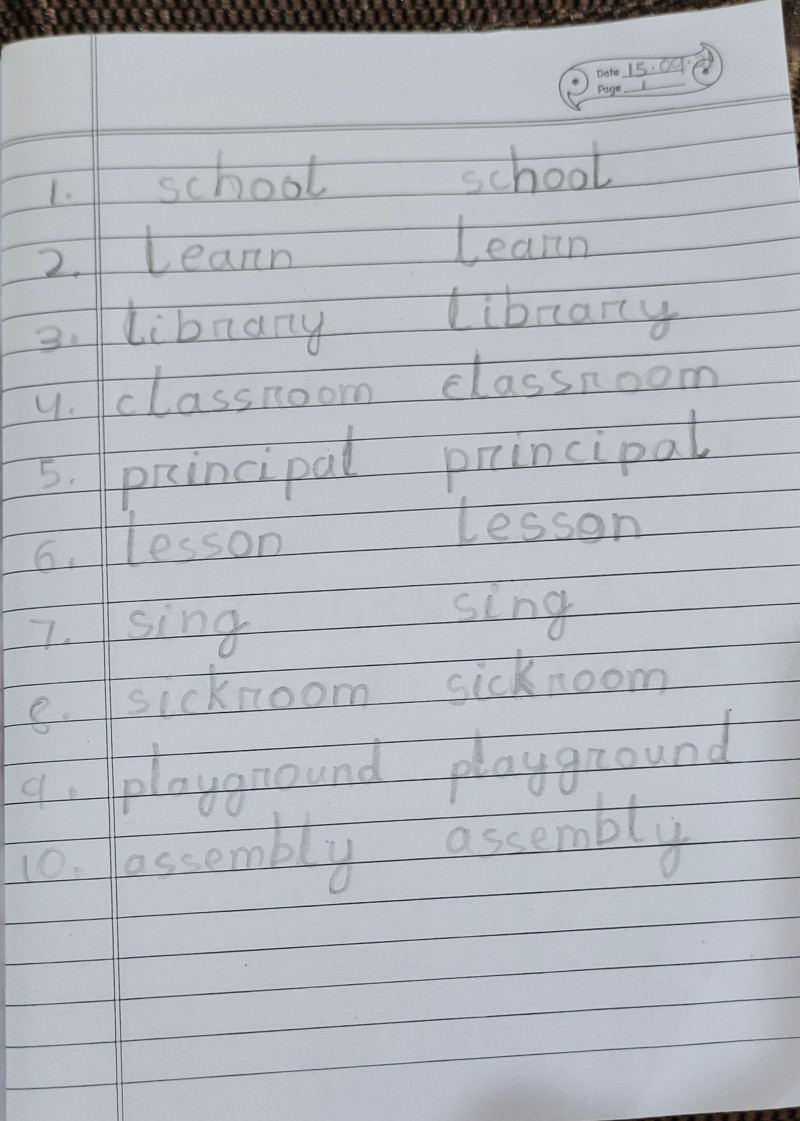 Date 15.09.
Page 1
1. school school
2. learn learn
3. library library
4. classroom classroom
5. principal principal
6. lesson lesson
7. sing sing
8. sickroom sickroom
9. playground playground
10. assembly assembly